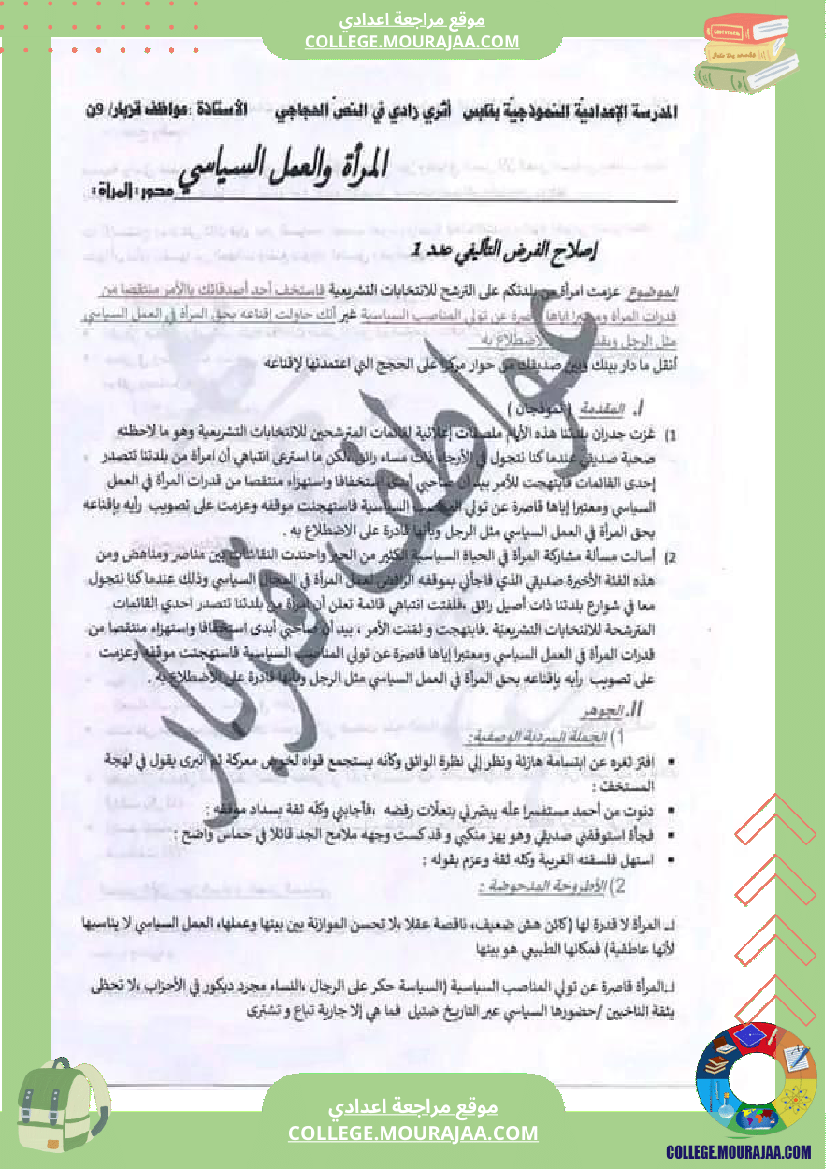 موقع مراجعة اعدادي
COLLEGE.MOURAJAA.COM
المدرسة الإعداديّة النموذجيّة بقابس أثري زادي في النصّ الحجاجي الأستاذة :عواطف قزبار/ 9ن
المرأة والعمل السياسي
محور: المرأة:
إصلاح الفرض التأليفي عدد 1
الموضوع عزمت امرأة من بلدتكم على الترشح للانتخابات التشريعية فاستخف أحد أصدقائك بالأمر منتقصا من
قدرات المرأة ومعتبرا إياها قاصرة عن تولي المناصب السياسية غير أنك حاولت إقناعه بحق المرأة في العمل السياسي
مثل الرجل الاضطلاع به
أنقل ما دار بينك وبين صديقك من حوار مركزا على الحجج التي اعتمدتها لإقناعه
I. المقدمة (نموذجان)
1) غزت جدران بلدتنا هذه الأيام ملصقات إعلانية لقائمات المترشحين للانتخابات التشريعية وهو ما لاحظته
صحبة صديقي عندما كنا نتجول في الأرجاء ذات مساء رائق ،لكن ما استرعى انتباهي أن امرأة من بلدتنا تتصدر
إحدى القائمات فابتهجت للأمر بيد أن صاحبي أبدى استخفافا واستهزاء منتقصا من قدرات المرأة في العمل
السياسي ومعتبرا إياها قاصرة عن تولي المناصب السياسية فاستهجنت موقفه وعزمت على تصويب رأيه بإقناعه
بحق المرأة في العمل السياسي مثل الرجل وبأنها قادرة على الاضطلاع به .
2) أسالت مسألة مشاركة المرأة في الحياة السياسية الكثير من الحبر واحتدت النقاشات بين مناصر ومناهض ومن
هذه الفئة الأخيرة صديقي الذي فاجأني بموقفه الرافض لعمل المرأة في المجال السياسي وذلك عندما كنا نتجول
معا في شوارع بلدتنا ذات أصيل رائق ،فلفتت انتباهي قائمة تعلن أن امرأة من بلدتنا تتصدر احدى القائمات
المترشحة للانتخابات التشريعيّة .فابتهجت و ثمّنت الأمر ، بيد أن صاحبي أبدى استخفافا واستهزاء منتقصا من
قدرات المرأة في العمل السياسي ومعتبرا إياها قاصرة عن تولي المناصب السياسية فاستهجنت موقفه وعزمت
على تصويب رأيه بإقناعه بحق المرأة في العمل السياسي مثل الرجل وبأنها قادرة على الاضطلاع به .
II. الجوهر
1) الجملة السردية الوصفية:
▪ افترّ ثغره عن ابتسامة هازئة ونظر إلي نظرة الواثق وكأنه يستجمع قواه لخوض معركة ثم انبرى يقول في لهجة
المستخفّ :
▪ دنوت من أحمد مستفسرا علّه يبصّرني بتعلّات رفضه ،فأجابني وكلّه ثقة بسداد موقفه :
▪ فجأة استوقفني صديقي وهو يهز منكبي و قد كست وجهه ملامح الجد قائلا في حماس واضح :
▪ استهل فلسفته الغريبة وكله ثقة وعزم بقوله :
2) الأطروحة المدحوضة :
المرأة لا قدرة لها (كائن هش ضعيف، ناقصة عقلا ،لا تحسن الموازنة بين بيتها وعملها، العمل السياسي لا يناسبها
لأنها عاطفية) فمكانها الطبيعي هو بيتها
المرأة قاصرة عن تولي المناصب السياسية (السياسة حكر على الرجال ،النساء مجرد ديكور في الأحزاب ،لا تحظى
بثقة الناخبين /حضورها السياسي عبر التاريخ ضئيل فما هي إلا جارية تباع و تشترى
عواطف قزبار
موقع مراجعة اعدادي
COLLEGE.MOURAJAA.COM
COLLEGE.MOURAJAA.COM